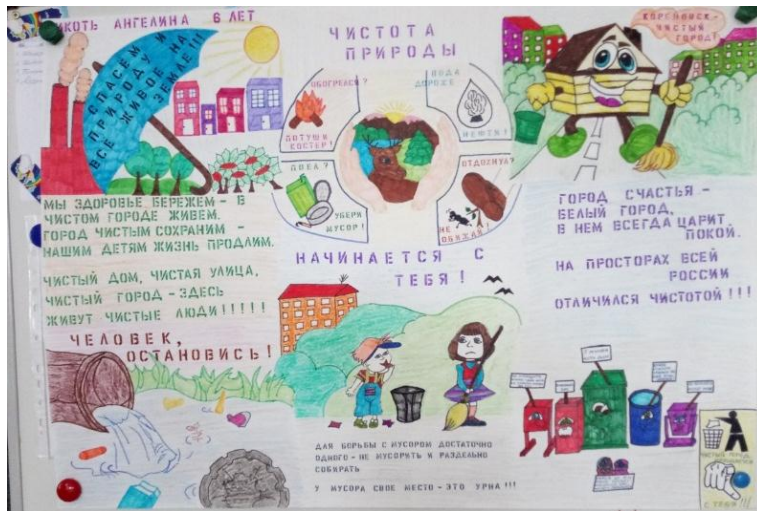 ИКОТЬ АНГЕЛИНА 6 ЛЕТ
СПАСЕМ И
ПРИРОДУ НА
ВСЕ ЖИВОЕ
ЗЕМЛЕ!!!
ЧИСТОТА
ПРИРОДЫ
ОБОГРЕЛСЯ?
ПОТУШИ
КОСТЕР!
ВОДА
ДОРОЖЕ
НЕФТИ!
ПОЕЛ?
УБЕРИ
МУСОР!
ОТДОХНУЛ?
НЕ
ОБИЖАЙ!
НАЧИНАЕТСЯ С
ТЕБЯ!
КОРЕНОВСК-
ЧИСТЫЙ
ГОРОД!
МЫ ЗДОРОВЬЕ БЕРЕЖЕМ - В
ЧИСТОМ ГОРОДЕ ЖИВЕМ.
ГОРОД ЧИСТЫМ СОХРАНИМ -
НАШИМ ДЕТЯМ ЖИЗНЬ ПРОДЛИМ.
ЧИСТЫЙ ДОМ, ЧИСТАЯ УЛИЦА,
ЧИСТЫЙ ГОРОД - ЗДЕСЬ
ЖИВУТ ЧИСТЫЕ ЛЮДИ!!!!!!
ЧЕЛОВЕК,
ОСТАНОВИСЬ!
ГОРОД СЧАСТЬЯ -
БЕЛЫЙ ГОРОД,
В НЕМ ВСЕГДА ЦАРИТ
ПОКОЙ.
НА ПРОСТОРАХ ВСЕЙ
РОССИИ
ОТЛИЧИЛСЯ ЧИСТОТОЙ!!!
ДЛЯ БОРЬБЫ С МУСОРОМ ДОСТАТОЧНО
ОДНОГО - НЕ МУСОРИТЬ И РАЗДЕЛЬНО
СОБИРАТЬ
У МУСОРА СВОЕ МЕСТО - ЭТО УРНА!!!
ЧИСТЫЙ ГОРОД
С ТЕБЯ!!!